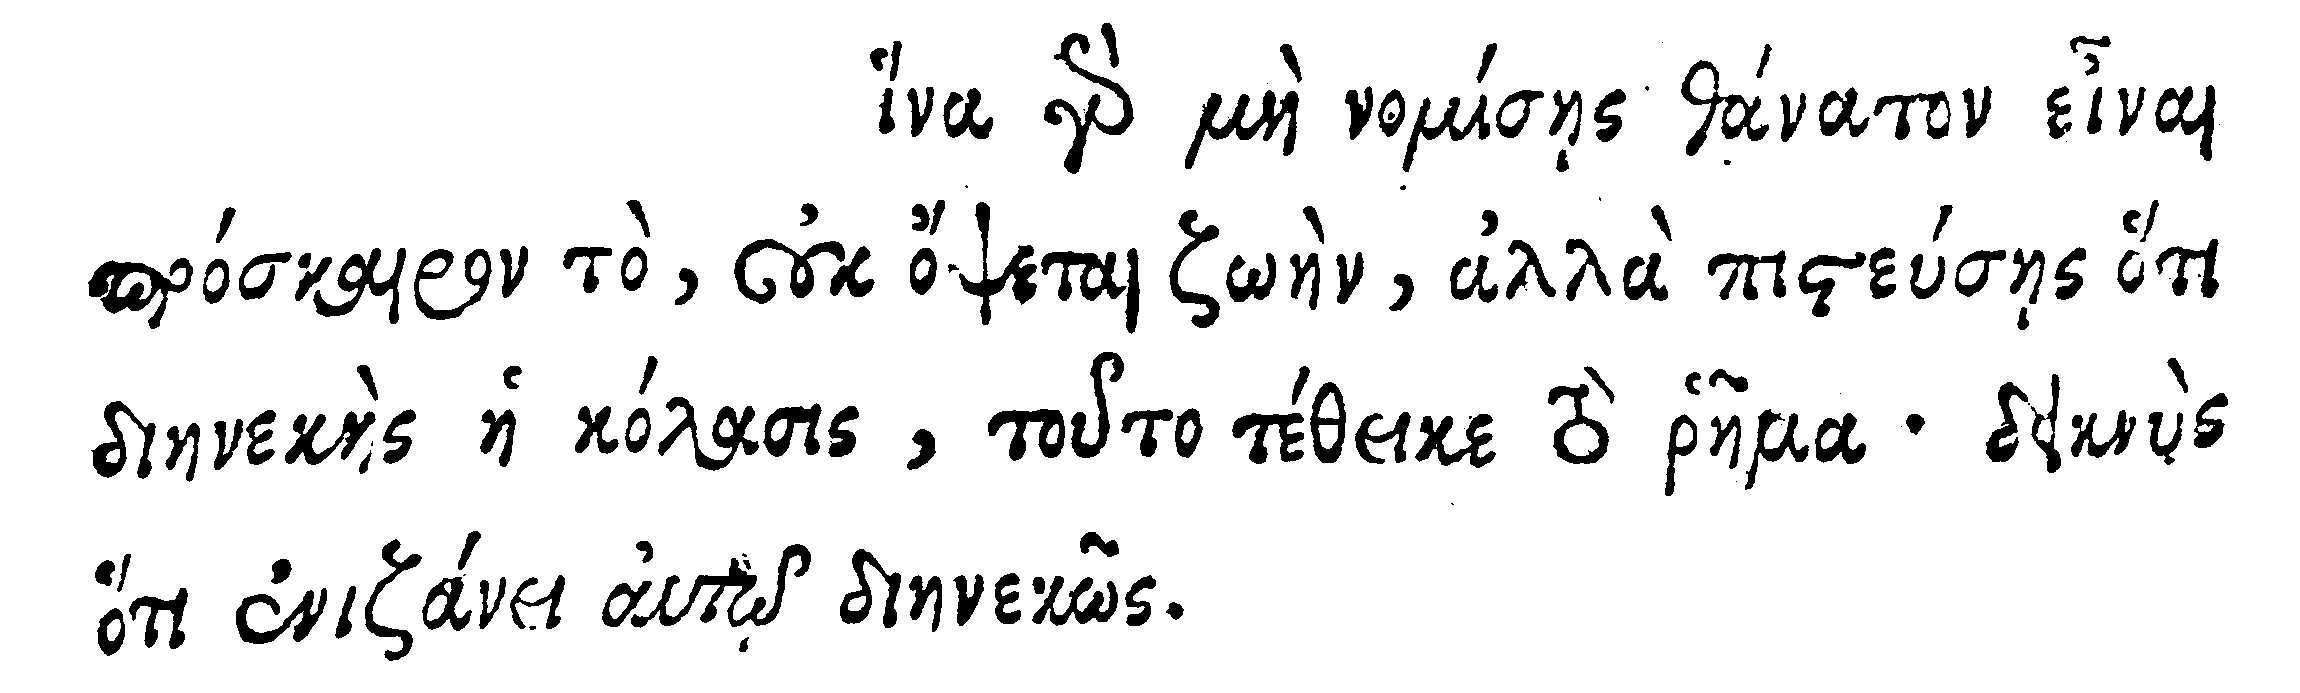 ἵνα γὰρ μὴ νομίσῃς θάνατον εἶναι
πρόσκαιρον τὸ, οὐκ ὄψεται ζωὴν, ἀλλὰ πιστεύσῃς ὅτι
διηνεκὴς ἡ κόλασις, τοῦτο τέθεικε τὸ ῥῆμα · δεικνὺς
ὅτι ἐνιζάνει αὐτῷ διηνεκῶς.